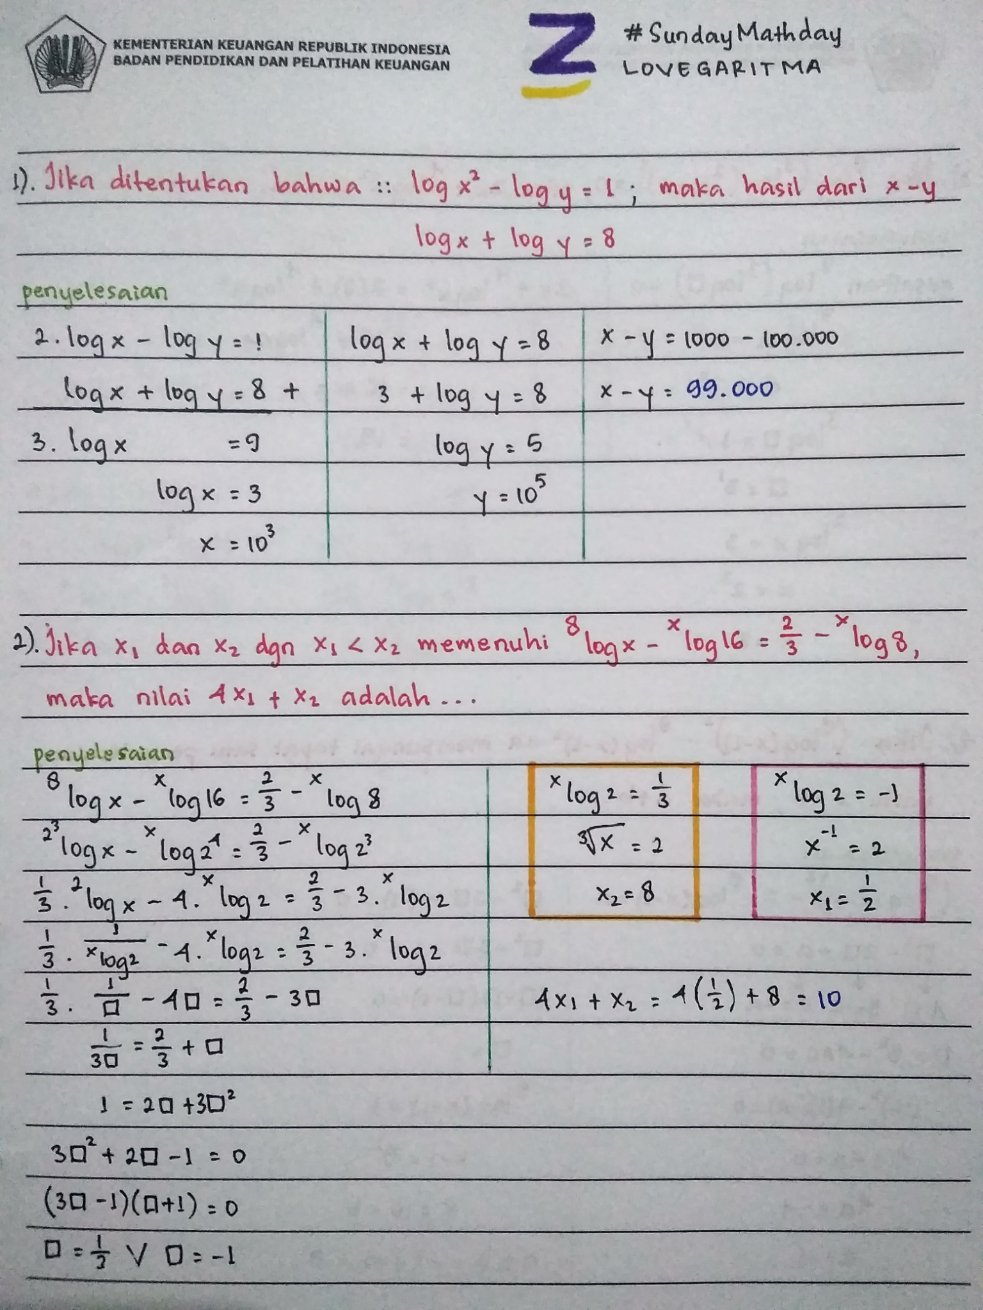 KEMENTERIAN KEUANGAN REPUBLIK INDONESIA
BADAN PENDIDIKAN DAN PELATIHAN KEUANGAN
Z
#SundayMathday
LOVEGARITMA
1). Jika ditentukan bahwa :: log x² - log y = 1 ; maka hasil dari x - y
log x + log y = 8
penyelesaian
2. log x - log y = 1
log x + log y = 8 +
3. log x = 9
log x = 3
x = 10³
log x + log y = 8
3 + log y = 8
log y = 5
y = 10⁵
x - y = 1000 - 100.000
x - y = 99.000
2). Jika x₁ dan x₂ dgn x₁ < x₂ memenuhi ⁸log x - ˣlog 16 = 2/3 - ˣlog 8,
maka nilai 4x₁ + x₂ adalah ...
penyelesaian
⁸log x - ˣlog 16 = 2/3 - ˣlog 8
2³log x - ˣlog 2⁴ = 2/3 - ˣlog 2³
1/3 . ²log x - 4. ˣlog 2 = 2/3 - 3. ˣlog 2
1/3 . 1/ˣlog2 - 4. ˣlog 2 = 2/3 - 3. ˣlog 2
1/3 . 1/□ - 4□ = 2/3 - 3□
1/3□ = 2/3 + □
1 = 2□ + 3□²
3□² + 2□ - 1 = 0
(3□ - 1)(□ + 1) = 0
□ = 1/3 ∨ □ = -1
ˣlog 2 = 1/3
³√x = 2
x₂ = 8
ˣlog 2 = -1
x⁻¹ = 2
x₁ = 1/2
4x₁ + x₂ = 4(1/2) + 8 = 10